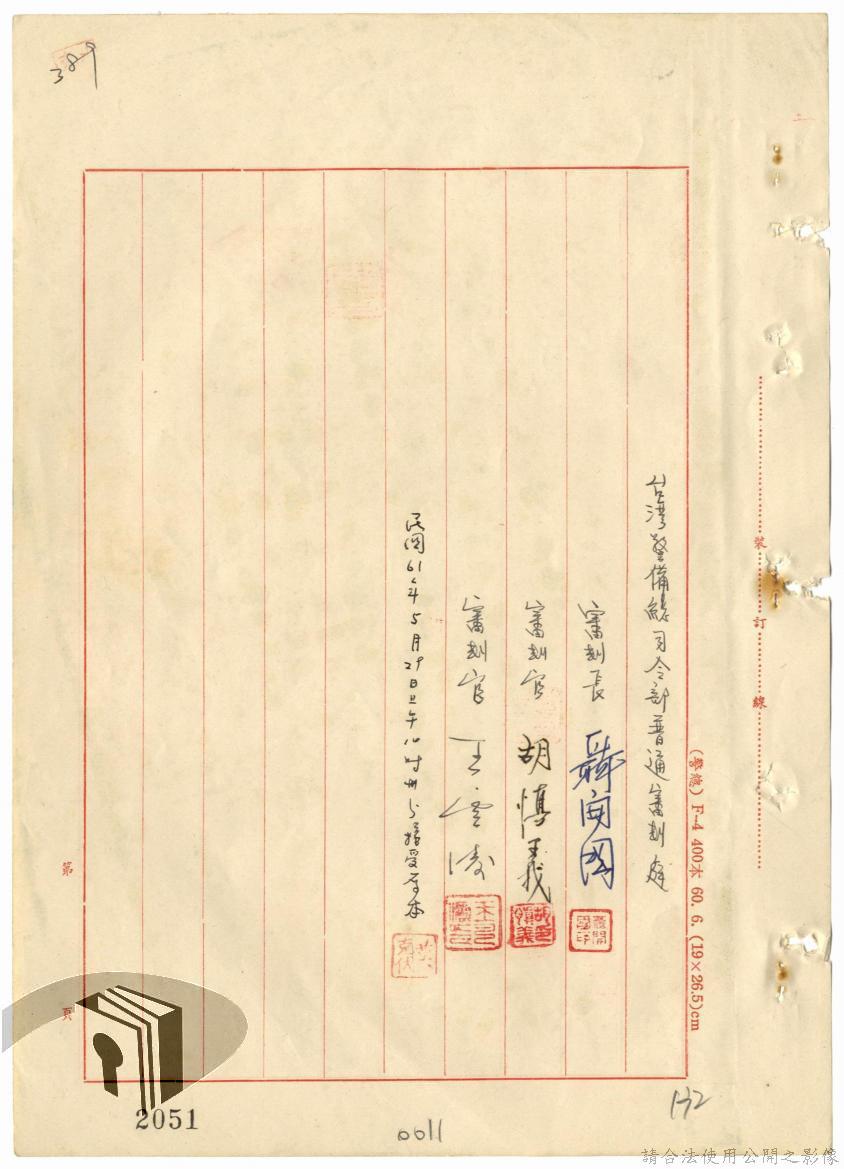 389
台灣警備總司令部普通審判庭
審判長 聶開國
審判官 胡慎義
審判官 王雲濤
民國61年5月29日上午10時卅分接受原本
裝訂線
(警總) F-4 400本 60. 6. (19×26.5)cm
第
頁
2051
0011
132
請合法使用公開之影像